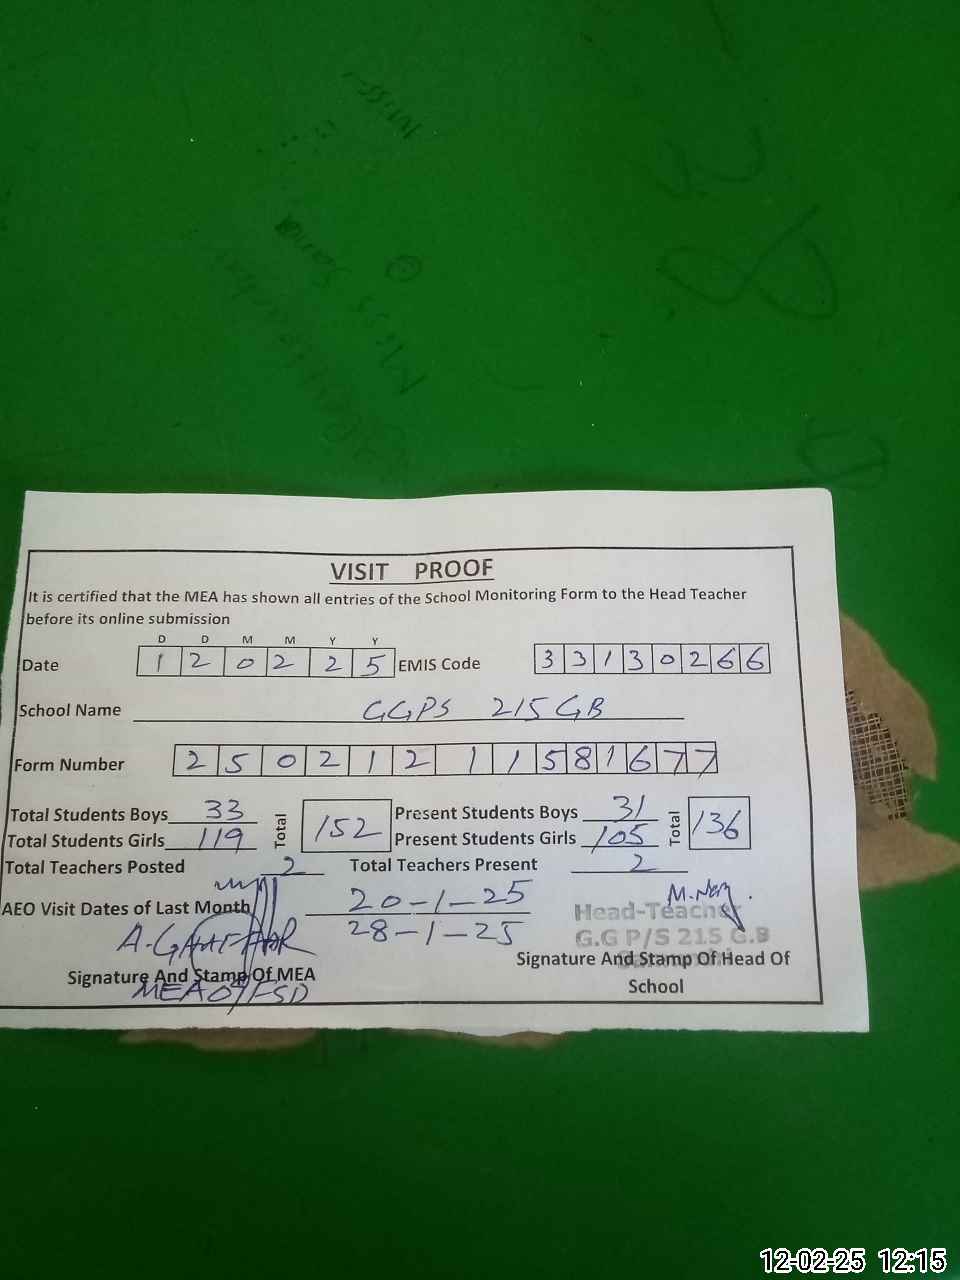 Miss
VISIT PROOF
It is certified that the MEA has shown all entries of the School Monitoring Form to the Head Teacher
before its online submission
D D M M Y Y
Date 1 2 0 2 2 5 EMIS Code 3 3 1 3 0 2 6 6
School Name GGPS 215 GB
Form Number 2 5 0 2 1 2 1 1 5 8 1 6 7 7
Total Students Boys 33 Total 152 Present Students Boys 31 Total 136
Total Students Girls 119 Present Students Girls 105
Total Teachers Posted 2 Total Teachers Present 2
AEO Visit Dates of Last Month 20-1-25
28-1-25
Head-Teacher
G.G P/S 215 G.B
A. GHAFFAR
Signature And Stamp Of MEA
Signature And Stamp Of Head Of
School
12-02-25 12:15